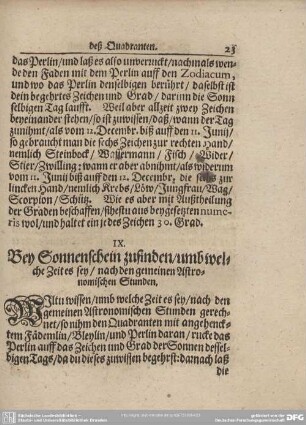 deß Quadranten. 23
das Perlin/ und laß es also unverruckt/ nachmals wen-
de den Faden mit dem Perlin auff den Zodiacum,
und wo das Perlin denselbigen berührt/ daselbst ist
dein begehrtes Zeichen und Grad/ darinn die Sonn
selbigen Tag laufft. Weil aber allzeit zwey Zeichen
beyeinander stehen/ so ist zuwissen/ daß/ wann der Tag
zunihmt/ als vom 12. Decembr. biß auff den 11. Junij/
so gebraucht man die sechs Zeichen zur rechten Hand/
nemlich Steinbock/ Wasserman/ Fisch/ Wider/
Stier/ Zwilling: wann er aber abnihmt/ als widerum
vom 11. Junij biß auff den 12. Decembr, die sechs zur
lincken Hand/ nemlich Krebs/ Löw/ Jungfrau/ Wag/
Scorpion/ Schütz. Wie es aber mit Außtheilung
der Graden beschaffen/ sihestu aus beygesetzten nume-
ris wol/ und haltet ein jedes Zeichen 30. Grad.
IX.
Bey Sonnenschein zufinden/ umb wel-
che Zeit es sey/ nach den gemeinen Astro-
nomischen Stunden.
WIltu wissen/ umb welche Zeit es sey/ nach den
gemeinen Astronomischen Stunden gerech-
net/ so nihm den Quadranten mit angehenck-
tem Fädemlin/ Bleylin/ und Perlin daran/ rucke das
Perlin auff das Zeichen und Grad der Sonnen dessel-
bigen Tags/ da du dieses zuwissen begehrst: darnach laß
die